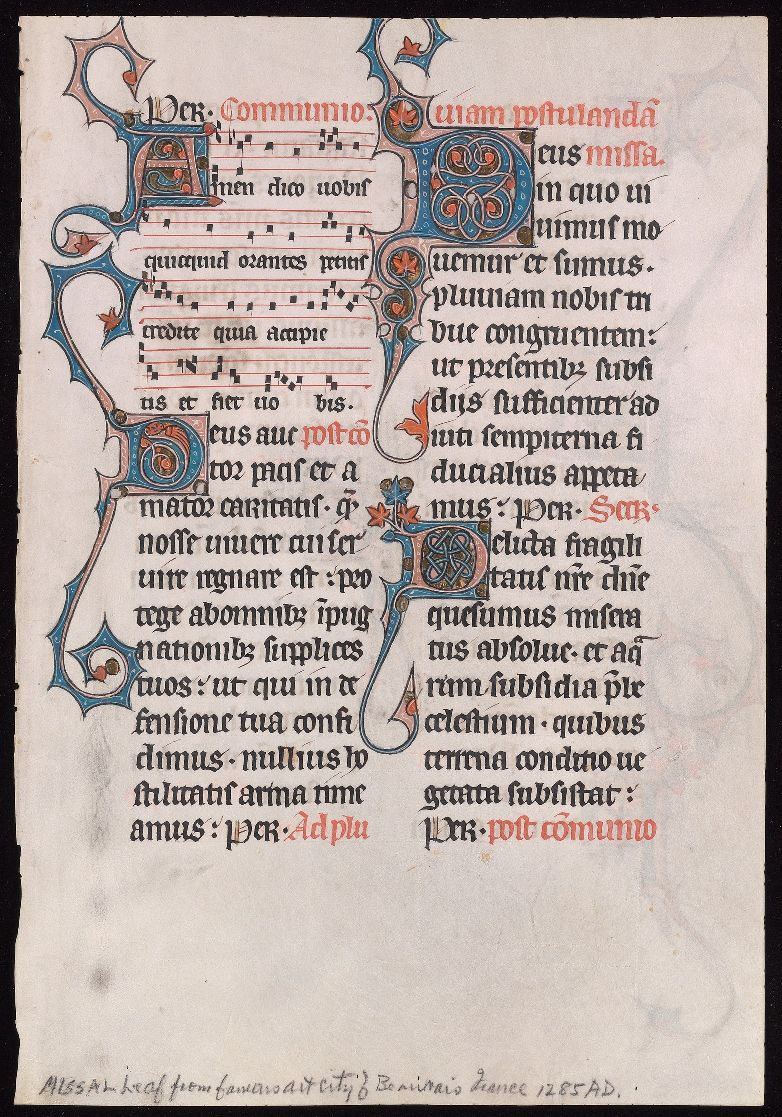 Per. Communio.
Amen dico uobis
quicquid orantes petitis
credite quia accipie
tis et fiet uo bis.
Deus auc post cō
tor pacis et a
mator caritatis. q̄
nosse uiuere cui ser
uire regnare est : pro
tege ab omnibꝫ īpug
nationibꝫ supplices
tuos : ut qui in de
fensione tua confi
dimus. nullius ho
stilitatis arma time
amus : Per. Ad plu
uiam postulandā
Deus missa.
in quo ui
uimus mo
uemur et sumus.
pluuiam nobis tri
bue congruentem :
ut presentibꝫ subsi
diis sufficienter ad
iuti sempiterna fi
ducialius appeta
mus : Per. Secr.
Delicta fragili
tatis nr̄e dn̄e
quesumus misera
tus absolue. et aq̄
rum subsidia p̄be
celestium. quibus
terrena conditio ue
getata subsistat :
Per. post cōmunio
MISSAL Leaf from famous art city of Beauvais France 1285 AD.